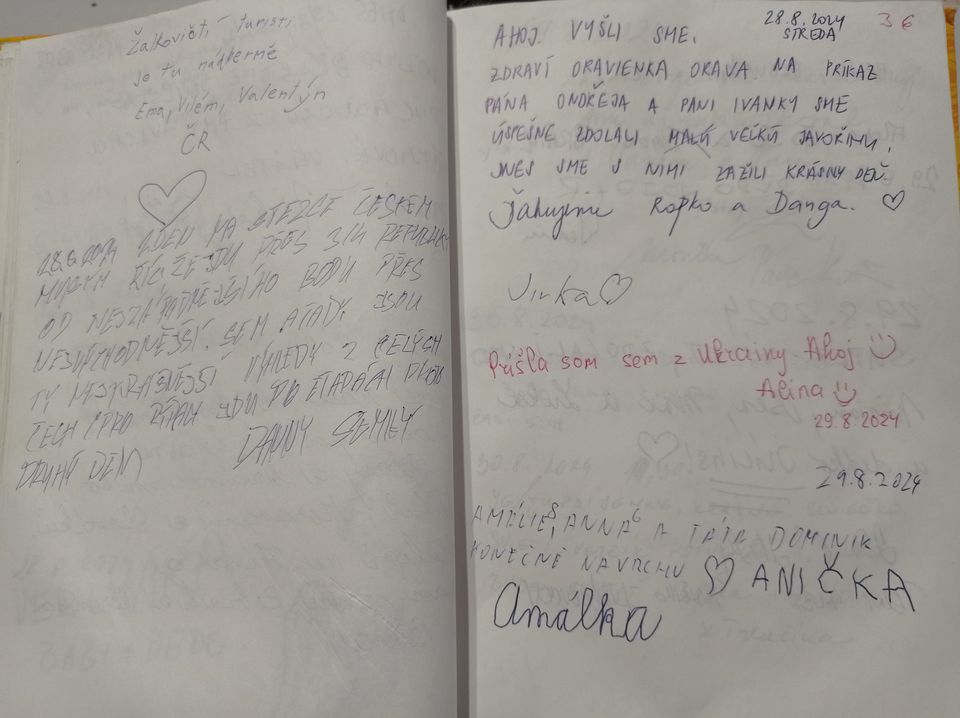 Žalkovičtí turisti
je tu nádherně
Ema, Vilém, Valentýn
ČR
28.8.2024 DEN NA STEZCE ČESKEM
ŽE JDU PŘES REPUBLIKU
OD NEJZÁPADNĚJŠÍHO BODU PŘES
NEJVÝCHODNĚJŠÍ. SEM A TADY JSOU
TY NEJKRÁSNĚJŠÍ VÝHLEDY Z CELÝCH
ČECH JDU PO ETAPÁCH
DRUHÝ DEN DANNY SEMILY
28.8.2024 36
STREDA
AHOJ. VYŠLI SME.
ZDRAVÍ ORAVIENKA ORAVA. NA PRÍKAZ
PÁNA ONDŘEJA A PANI IVANKY SME
ÚSPEŠNE ZDOLALI MALÚ VEĽKÚ JAVOŘINU,
DNES SME S NIMI ZAŽILI KRÁSNY DEŇ.
Ďakujeme Ropko a Danga.
Jirka
Prišla som sem z Ukrainy Ahoj
Alina
29.8.2024
29.8.2024
AMÁLIE 8, ANNA 6 A TÁTA DOMINIK
KONEČNĚ NAVRCHU ANIČKA
Amálka